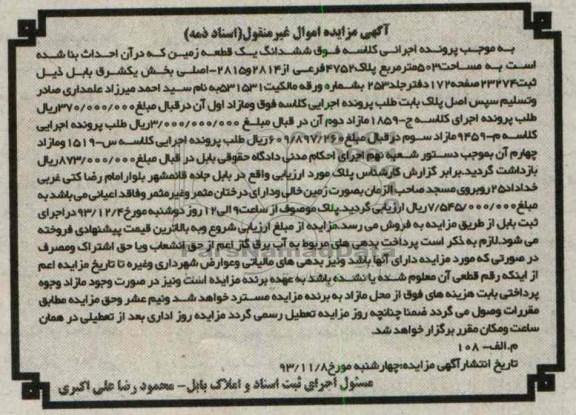 آگهی مزایده اموال غیرمنقول(اسناد ذمه)
به موجب پرونده اجرائی کلاسه فوق ششدانگ یک قطعه زمین که درآن احداث بنا شده
است به مساحت۵۰۳مترمربع پلاک۴۷۵۲فرعی از۲۸۱۴و۲۸۱۵-اصلی بخش یکشرق بابل ذیل
ثبت۲۳۲۷۴صفحه۱۷۲دفترجلد۲۵۳ بشماره ورقه مالکیت۵۳۱۵۳۱به نام سید احمد میرزاد علمداری صادر
وتسلیم سپس اصل پلاک بابت طلب پرونده اجرایی کلاسه فوق ومازاد اول آن درقبال مبلغ۳۷۰/۰۰۰/۰۰۰ریال
طلب پرونده اجرای کلاسه ج-۱۸۵۹مازاد دوم آن در قبال مبلغ ۳/۰۰۰/۰۰۰/۰۰۰ریال طلب پرونده اجرایی
کلاسه م-۹۴۵۹مازاد سوم درقبال مبلغ۶۰۹/۸۹۷/۲۶۰ریال طلب پرونده اجرایی کلاسه س-۱۵۱۹ ومازاد
چهارم آن بموجب دستور شعبه نهم اجرای احکام مدنی دادگاه حقوقی بابل در قبال مبلغ۸۷۳/۰۰۰/۰۰۰ریال
بازداشت گردید.برابر گزارش کارشناس پلاک مورد ارزیابی واقع در بابل جاده قائمشهر بلوارامام رضا کتی غربی
خداداد۲۵روبروی مسجد صاحب الزمان بصورت زمین خالی ودارای درختان مثمر وغیرمثمر وفاقد اعیانی می باشد به
مبلغ۷/۵۴۵/۰۰۰/۰۰۰ریال ارزیابی گردید.پلاک موصوف از ساعت۹ الی۱۲ روز دوشنبه مورخ۹۳/۱۲/۴ دراجرای
ثبت بابل از طریق مزایده به فروش می رسد.مزایده از مبلغ ارزیابی شروع وبه بالاترین قیمت پیشنهادی فروخته
می شود.لازم به ذکر است پرداخت بدهی های مربوط به آب برق گاز اعم از حق انشعاب ویا حق اشتراک ومصرف
در صورتی که مورد مزایده دارای آنها باشد ونیز بدهی های مالیاتی وعوارض شهرداری وغیره تا تاریخ مزایده اعم
از اینکه رقم قطعی آن معلوم شده یا نشده باشد به عهده برنده مزایده است ونیز در صورت وجود مازاد وجوه
پرداختی بابت هزینه های فوق از محل مازاد به برنده مزایده مسترد خواهد شد ونیم عشر وحق مزایده مطابق
مقررات وصول می گردد ضمنا چنانچه روز مزایده تعطیل رسمی گردد مزایده روز اداری بعد از تعطیلی در همان
ساعت ومکان مقرر برگزار خواهد شد.
م.الف- ۱۰۸
تاریخ انتشارآگهی مزایده:چهارشنبه مورخ۹۳/۱۱/۸
مسئول اجرای ثبت اسناد و املاک بابل- محمود رضا علی اکبری